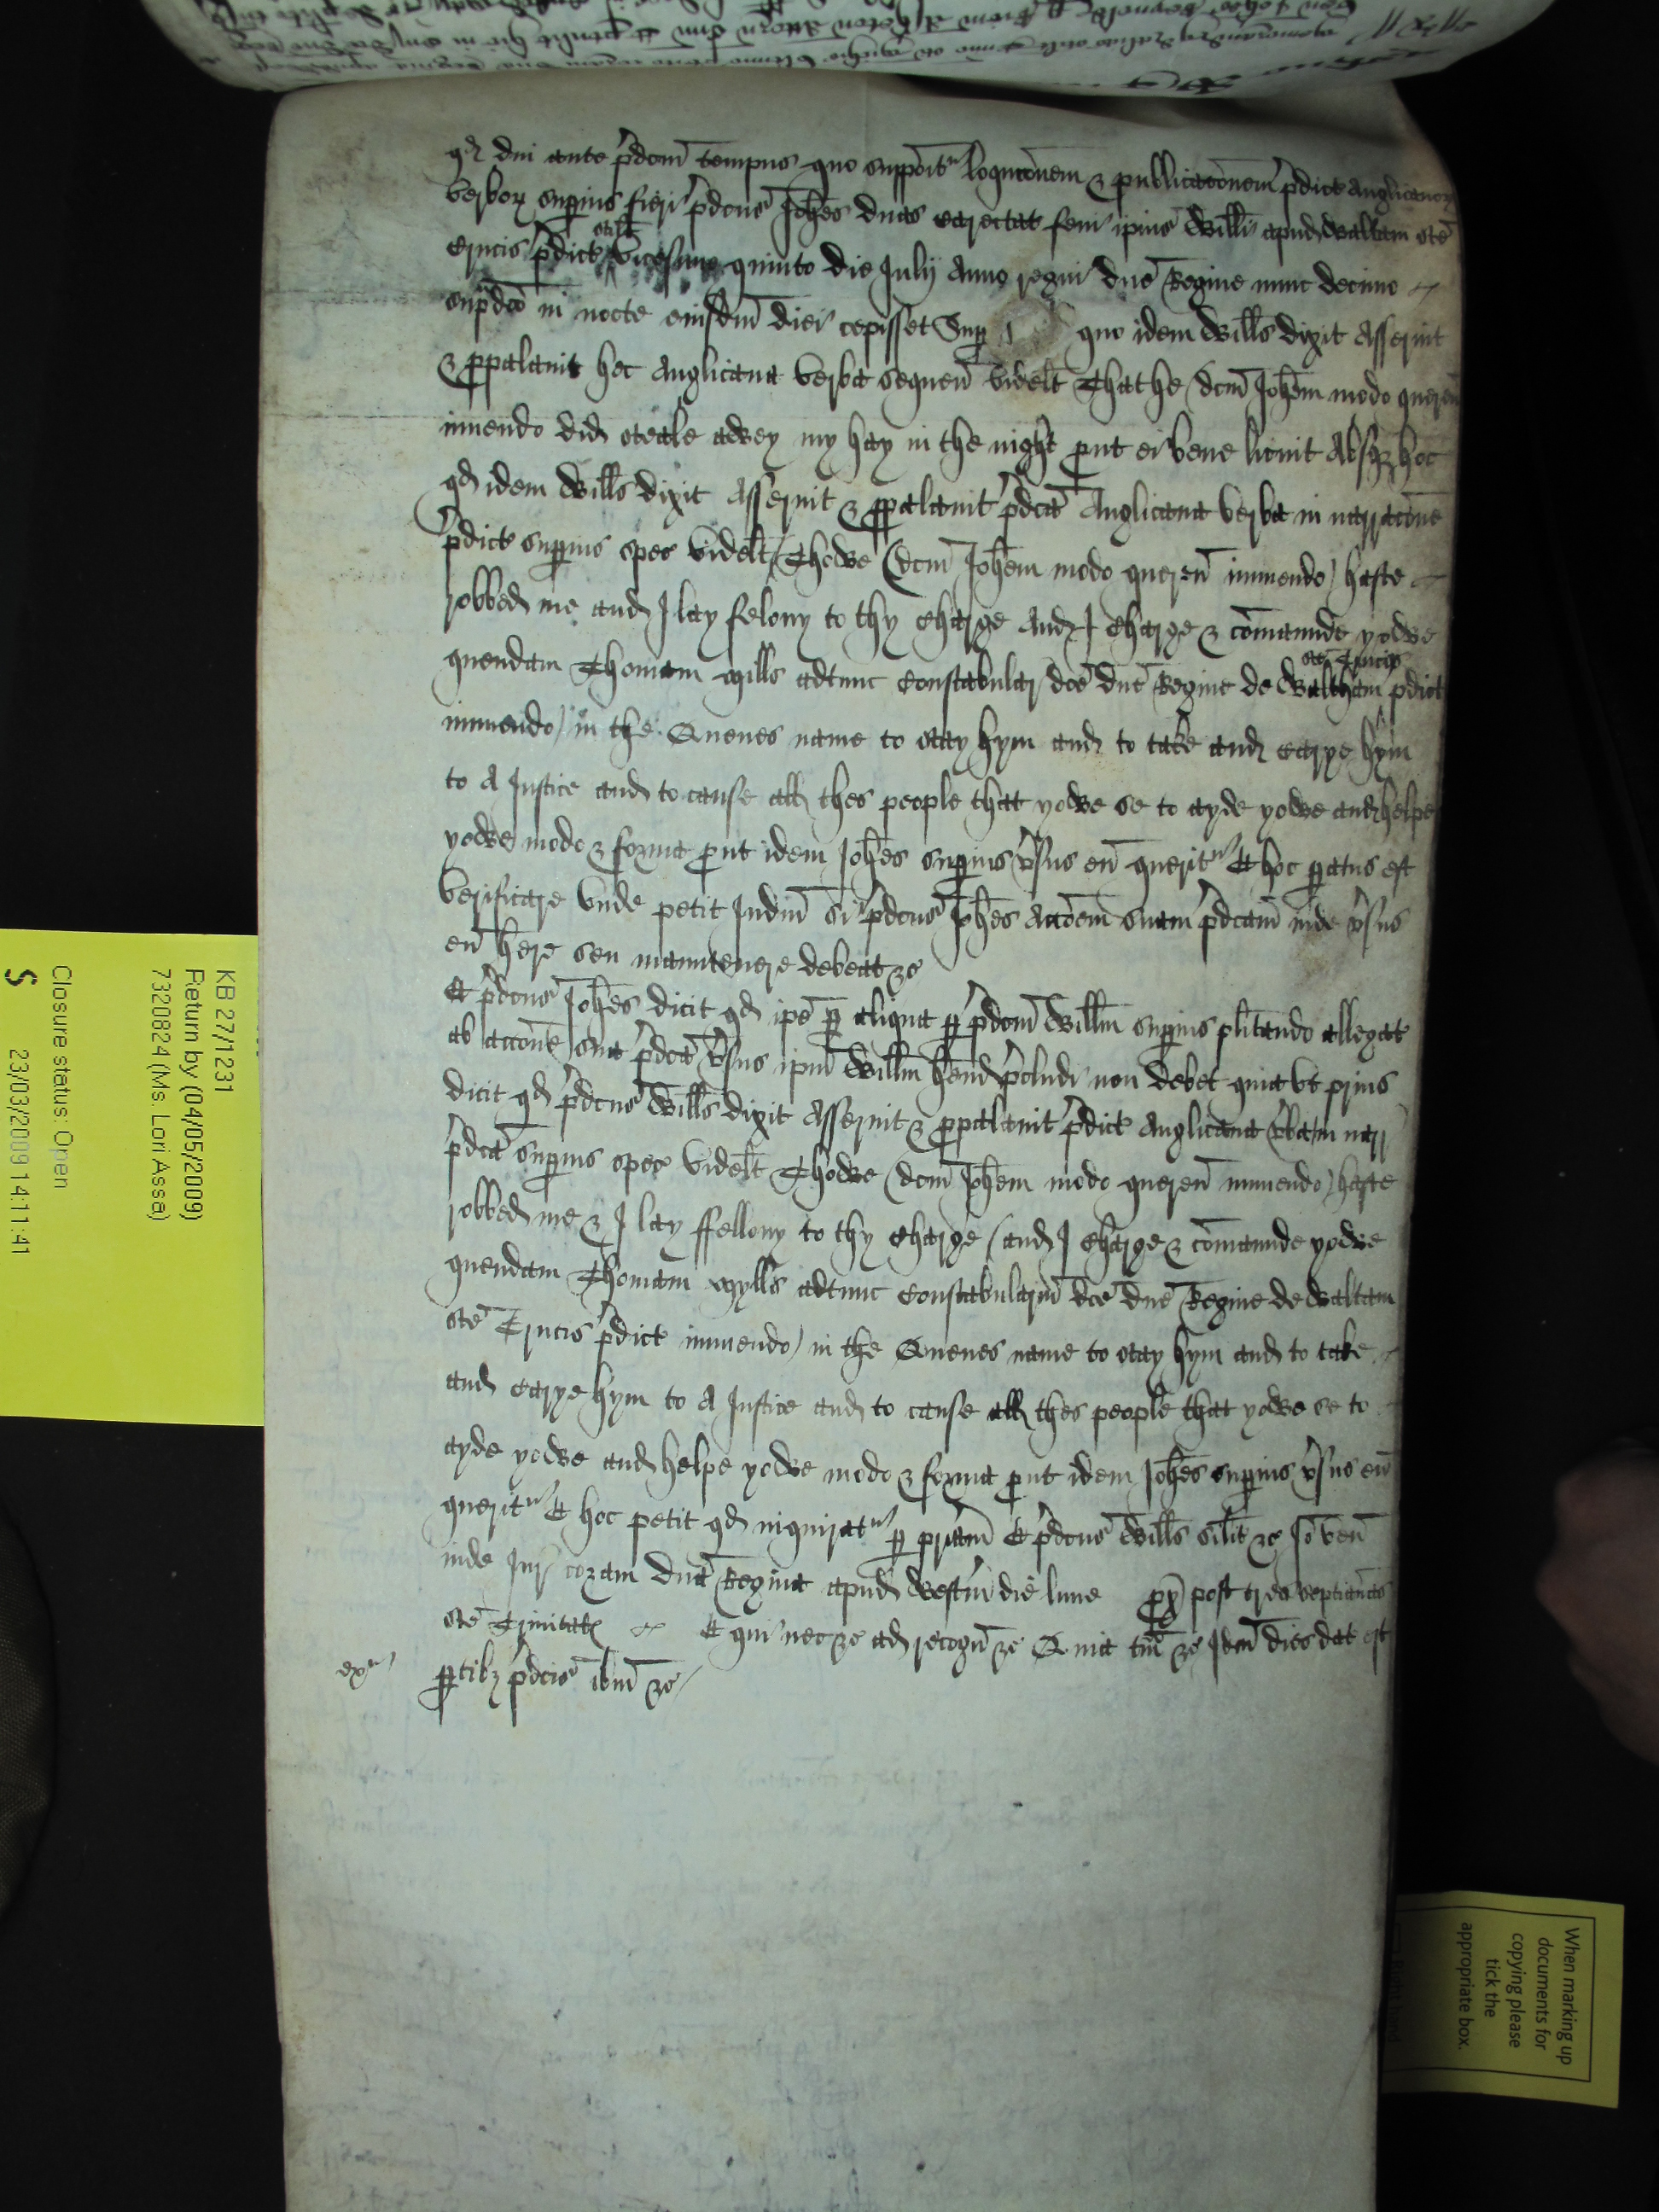 qd diu ante pdcm tempus quo supponitr loqucionem & publicacionem pdict Anglicanor
verbor superius fieri pdcus Johes duas carectat feni ipius Willi apud Waltam sce
Crucis pdict vicesimo quinto die Julij Anno regni dne Regine nunc decimo
supdco in nocte eiusdm diei cepisset Sup quo idem Wills dixit Asseruit
& ppalauit hec Anglicana verba sequen videlt That he (dcm Johem modo queren
innuendo did steale awey my hay in the night put ei bene licuit Absq hoc
qd idem Wills dixit Asseruit & ppalauit pdca Anglicana verba in narracone
pdict superius spec videlt Thowe (dcm Johem modo queren innuendo) haste
robbed me and I lay felony to thy Charge And I Charge & comaunde yowe
quendam Thomam mills adtunc Constabular dce dne Regine de Waltham sce Crucis pdict
innuendo) in the Quenes name to stay hym and to take and carye hym
to A Justice and to cause all thes people that yowe se to ayde yowe and helpe
yowe modo & forma put idem Johes superius vsus eu queritr Et hoc paratus est
verificare vnde petit Judm si pdcus Johes Accoem suam pdcam inde vsus
eu here seu manutenere debeat &c
Et pdcus Johes dicit qd ipe p aliqua p pdcm Willm superius plitando allegat
ab accone sua pdca vsus ipm Willm hend pcludi non debet quia vt prius
dicit qd pdcus Wills dixit Asseruit & ppalauit pdict Anglicana vba in narr
pdca superius spec videlt Thowe (dcm Johem modo queren innuendo) haste
robbed me & I lay ffellony to thy Charge (and I Charge & comaunde yowe
quendam Thomam mylls adtunc Constabularm dce dne Regine de Waltam
sce Crucis pdict innuendo) in the Quenes name to stay hym and to take
and carye hym to A Justice and to cause all thes people that yowe se to
ayde yowe and helpe yowe modo & forma put idem Johes superius vsus eu
queritr Et hoc petit qd inquiratr p priam Et pdcus Wills silit &c Io ven
inde Jur coram dna Regina apud Westm die lune px post tres septianas
sce Trinitat Et qui nec &c ad recogn &c Quia tm &c Idm dies dat est
exr
ptibz pdcis ibm &c
KB 27/1231
Return by (04/05/2009)
7320824 (Ms. Lori Assa)
Closure status: Open
S 23/03/2009 14:11:41
When marking up
documents for
copying please
tick the
appropriate box.